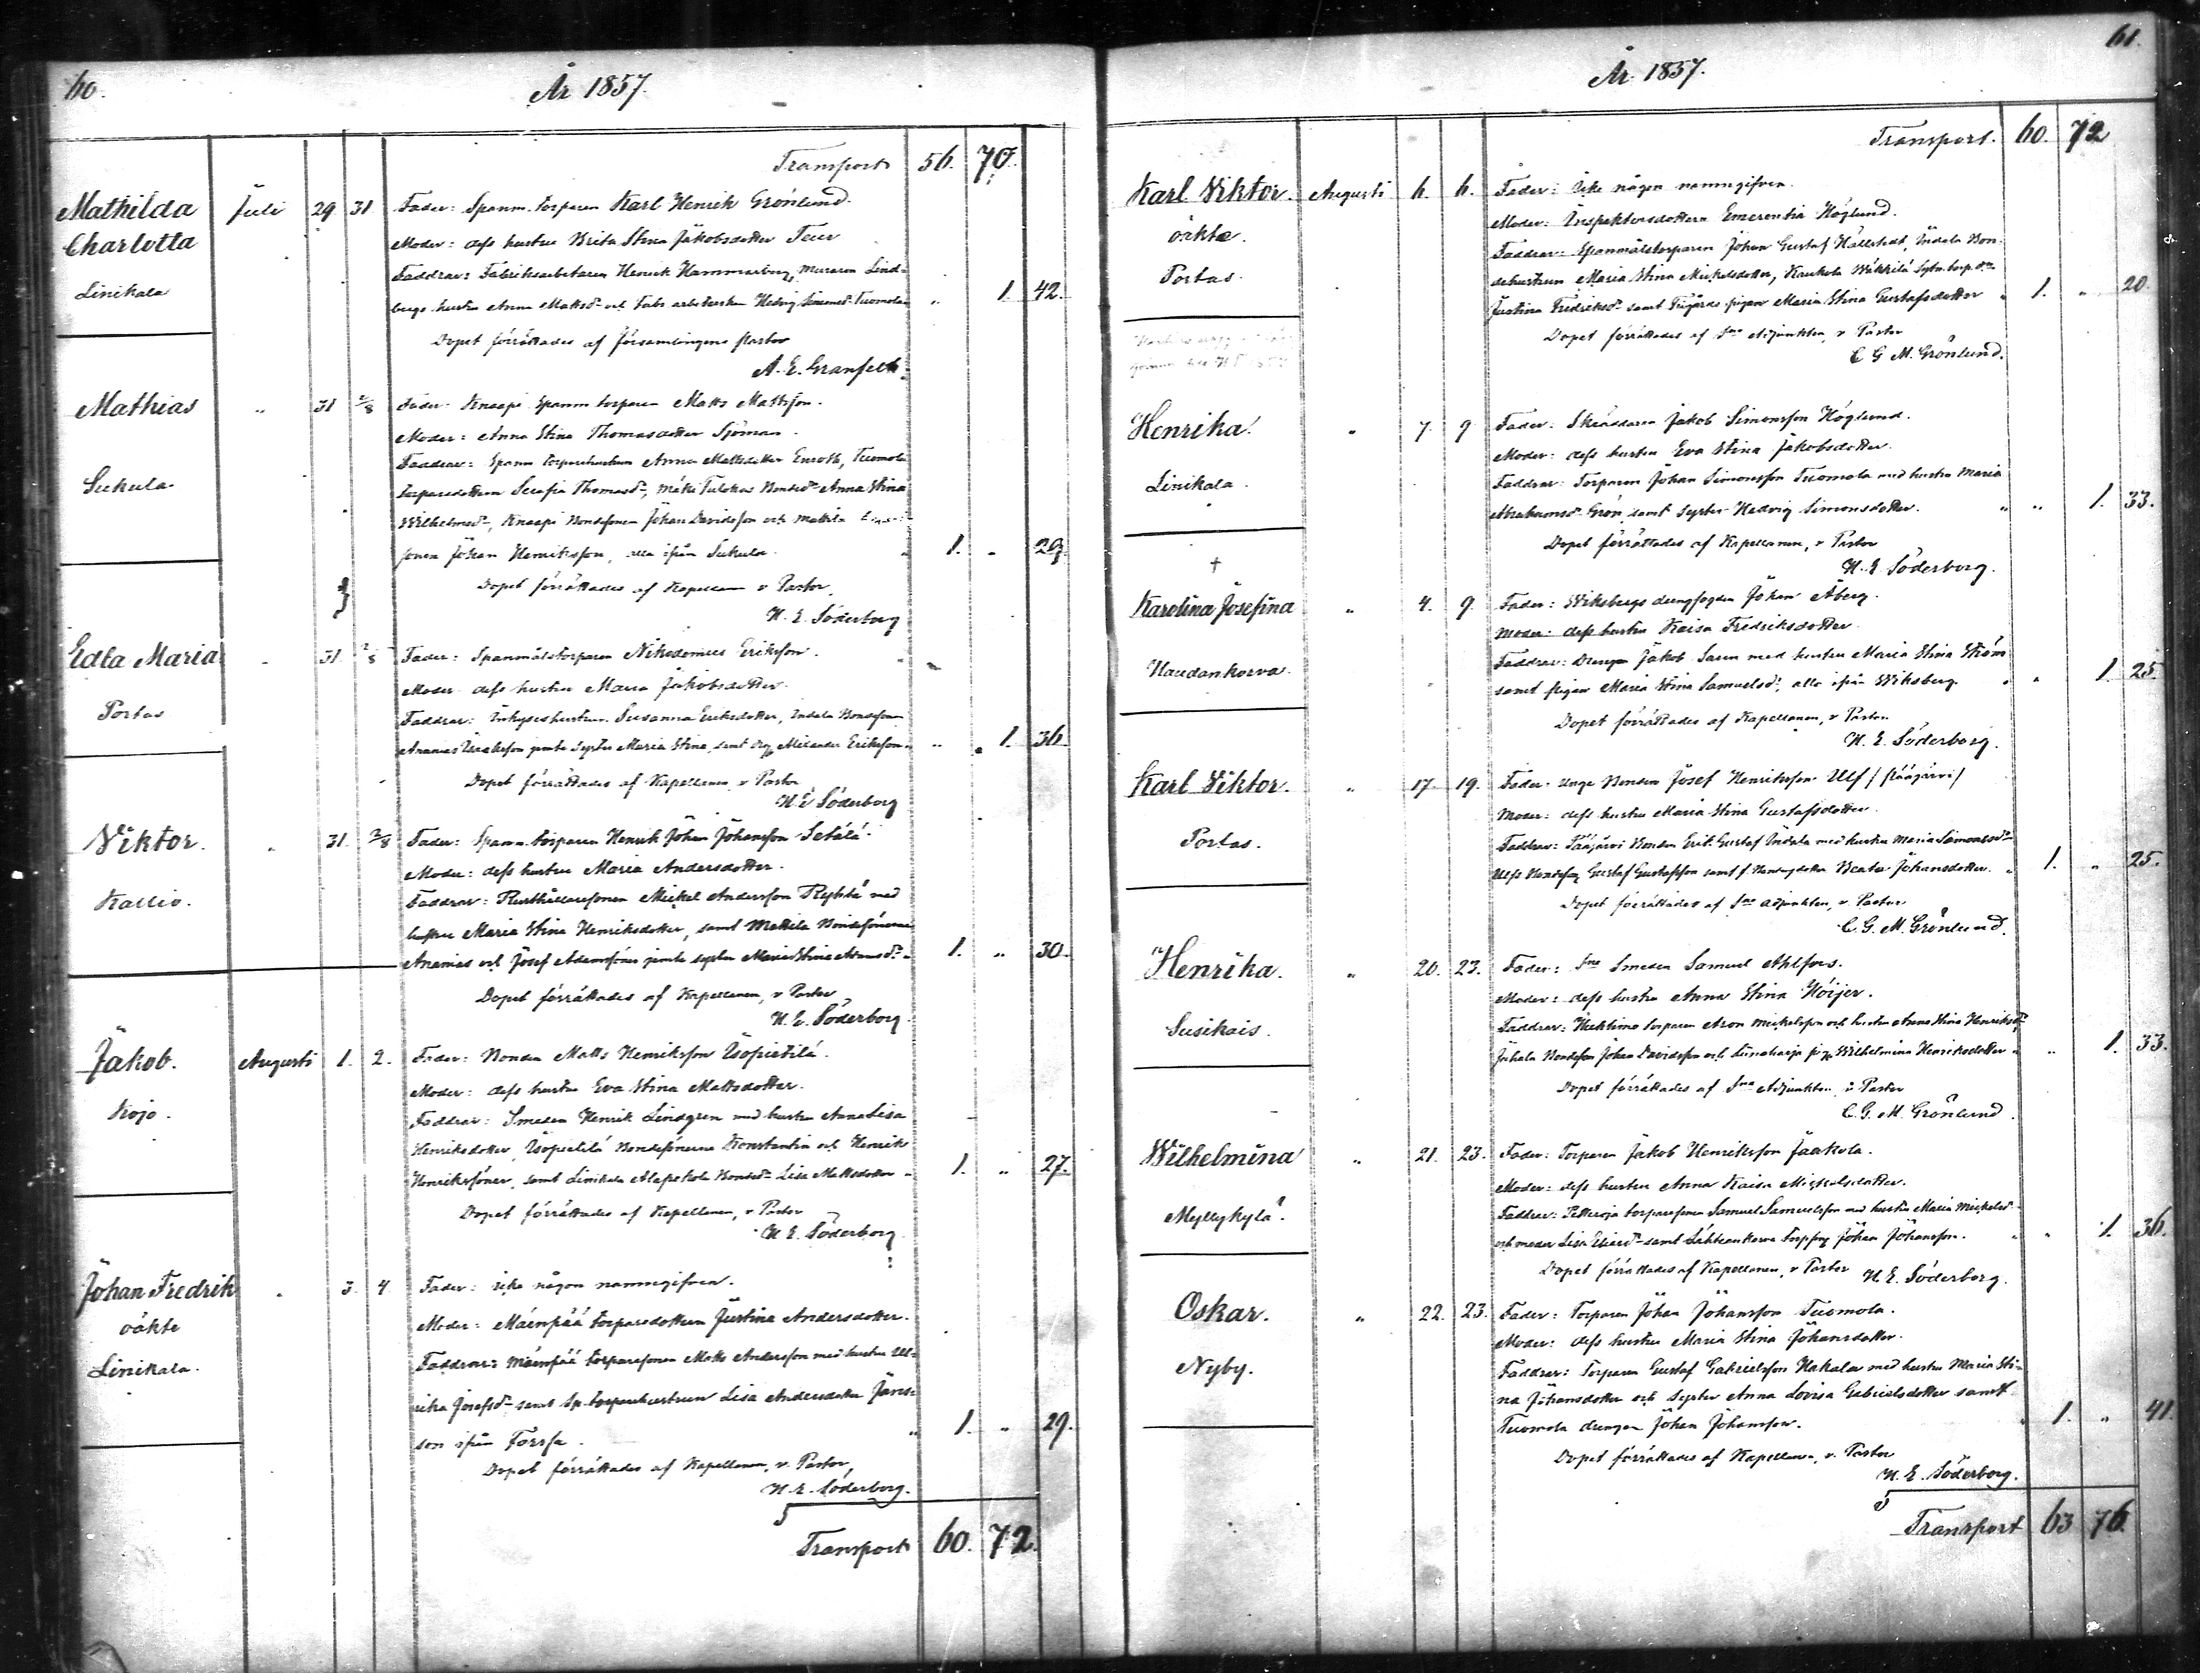 60.
År 1857.
Transport 56. 70.
Mathilda Juli 29 31 Fader: Spanm. torparen Karl Henrik Grönlund.
Charlotta Moder: dess hustru Brita Stina Jakobsdotter Teur
Linikala Faddrar: Fabriksarbetaren Henrik Hammarberg, muraren Lind-
bergs hustru Anna Mattsdr och fabr. arbeterskan Hedvig Simonsdr Tuomola " 1. 42.
Dopet förrättades af församlingens pastor
A. E. Granfelt.
Mathias " 31 2/8 Fader: Knaapi Spanm torparen Matts Mattsson.
Moder: Anna Stina Thomasdotter Sjöman.
Sukula. Faddrar: Spanm torparehustrun Anna Mattsdotter Enroth, Tuomola
torparedottern Serafia Thomasdr, Mäki Tulokas Bondedr Anna Stina
Wilhelmsdr, Knaapi Bondesonen Johan Davidsson och Mattila
sonen Johan Henriksson, alla ifrån Sukula. " 1. " 29.
Dopet förrättades af Kapellanen v Pastor,
H. E. Söderborg
Edla Maria " 31. 2/8 Fader: Spanmålstorparen Nikodemus Eriksson.
Moder dess hustru Maria Jakobsdotter.
Portas Faddrar: Inhyseshustrun Susanna Eriksdotter, Indala Bondesonen
Ananias Isaaksson jemte syster Maria Stina, samt dr Alexander Eriksson " " 1. 36.
Dopet förrättades af Kapellanen v Pastor
H. E. Söderborg
Viktor. " 31. 2/8 Fader: Spanm. torparen Henrik Johan Johansson Setälä.
Moder: dess hustru Maria Andersdotter.
Kallio. Faddrar: Rusthållaresonen Mickel Andersson Rybbtä med
hustru Maria Stina Henriksdotter, samt Mattila Bondesönerne
Ananias och Josef Adamssöner jemte syster Maria Stina Adamsdr " 1. " 30.
Dopet förrättades af Kapellanen, v Pastor
H. E. Söderborg.
Jakob. Augusti 1. 2. Fader: Bonden Matts Henriksson Isopietilä.
Moder: dess hustru Eva Stina Mattsdotter.
Kojo. Faddrar: Smeden Henrik Lindgren med hustru Anna Lisa
Henriksdotter, Isopietilä Bondesönerne Konstantin och Henrik
Henrikssöner, samt Linikala Alapekola Bondedr Lisa Mattsdotter " 1. " 27.
Dopet förrättades af Kapellanen, v Pastor
H. E. Söderborg.
Johan Fredrik " 3. 4 Fader: icke någon namngifven.
oäkte Moder: Mäenpää torparedottern Justina Andersdotter.
Linikala. Faddrar: Mäenpää torparesonen Matts Andersson med hustru Ul-
rika Josefsdr samt Sp. torparehustrun Lisa Andersdotter Jans-
son ifrån Forssa. " 1. " 29.
Dopet förrättades af Kapellanen, v. Pastor,
H. E. Söderborg.
Transport 60. 72.
61.
År 1857.
Transport. 60. 72
Karl Viktor. Augusti 6. 6. Fader: Icke någon namngifven.
oäkte. Moder: Inspektorsdottern Emerentia Höglund.
Portas. Faddrar: Spanmålstorparen Johan Gustaf Hällstedt, Indala Bon-
dehustrun Maria Stina Mickelsdotter, Kaukola Wäkkilä Sytn. torp. dr
Justina Fredriksdr samt Trigårds pigan Maria Stina Gustafsdotter " 1. " 20.
Dopet förrättades af Sne Adjunkten, v Pastor
C. G. M. Grönlund.
Henrika. " 7. 9 Fader: Skräddaren Jakob Simonsson Höglund.
Moder: dess hustru Eva Stina Jakobsdotter.
Linikala. Faddrar: Torparen Johan Simonsson Tuomola med hustru Maria
Abrahamsdr Grön, samt syster Hedvig Simonsdotter. " " 1. 33.
Dopet förrättades af Kapellanen, v Pastor
H. E. Söderborg.
†
Karolina Josefina " 4. 9. Fader: Wiksbergs drengfogden Johan Åberg.
Moder: dess hustru Kaisa Fredriksdotter.
Haudankorva. Faddrar: Drengen Jakob Saren med hustru Maria Stina Ström
samt pigan Maria Stina Samuelsdr, alla ifrån Wiksberg. " " 1. 25.
Dopet förrättades af Kapellanen, v Pastor.
H. E. Söderborg.
Karl Viktor. " 17. 19. Fader. Unge Bonden Josef Henriksson Ulf / Pääjärvi /
Moder: dess hustru Maria Stina Gustafsdotter.
Portas. Faddrar: Pääjärvi Bonden Erik Gustaf Indala med hustru Maria Simonsdr
Ulfs Bondeson Gustaf Gustafsson samt f. Bondedotter Beata Johansdotter. " 1. " 25.
Dopet förrättades af Sne Adjunkten, v. Pastor
C. G. M. Grönlund.
Henrika. " 20. 23. Fader: Sne Smeden Samuel Ahlfors.
Moder: dess hustru Anna Stina Höijer.
Susikais. Faddrar: Huhtimo torparen Aron Mickelsson och hustru Anna Stina Henriksdr
Juhala Bondeson Johan Davidsson och Liinaharja pigan Wilhelmina Henriksdotter " " 1. 33.
Dopet förrättades af Sne Adjunkten, v Pastor
C. G. M. Grönlund.
Wilhelmina " 21. 23. Fader: Torparen Jakob Henriksson Jaakola.
Moder: dess hustru Anna Kaisa Mickelsdotter.
Myllykylä. Faddrar: Petteroja torparesonen Samuel Samuelsson med hustru Maria Mickelsdr
och moder Lisa Eliaedr samt Lähteenkorva torpson Johan Johansson. " " 1. 36.
Dopet förrättades af Kapellanen, v Pastor H. E. Söderborg.
Oskar. " 22. 23. Fader: Torparen Johan Johansson Tuomola.
Moder: dess hustru Maria Stina Johansdotter.
Nyby. Faddrar: Torparen Gustaf Gabrielsson Hakala med hustru Maria Sti-
na Johansdotter och syster Anna Lovisa Gabrielsdotter samt
Tuomola drengen Johan Johansson. " 1. " 41.
Dopet förrättades af Kapellanen, v. Pastor
H. E. Söderborg.
Transport 63 76